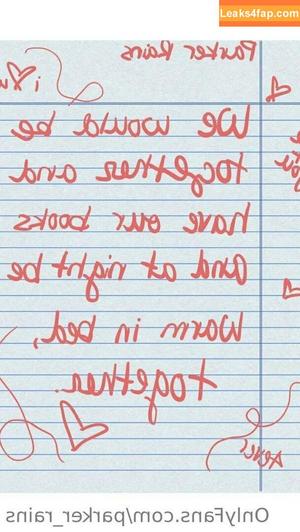 Leaks4fap.com
Parker Rains
i ♡ u
We would be
together and
have our books
and at night be
warm in bed,
together.
OnlyFans.com/parker_rains